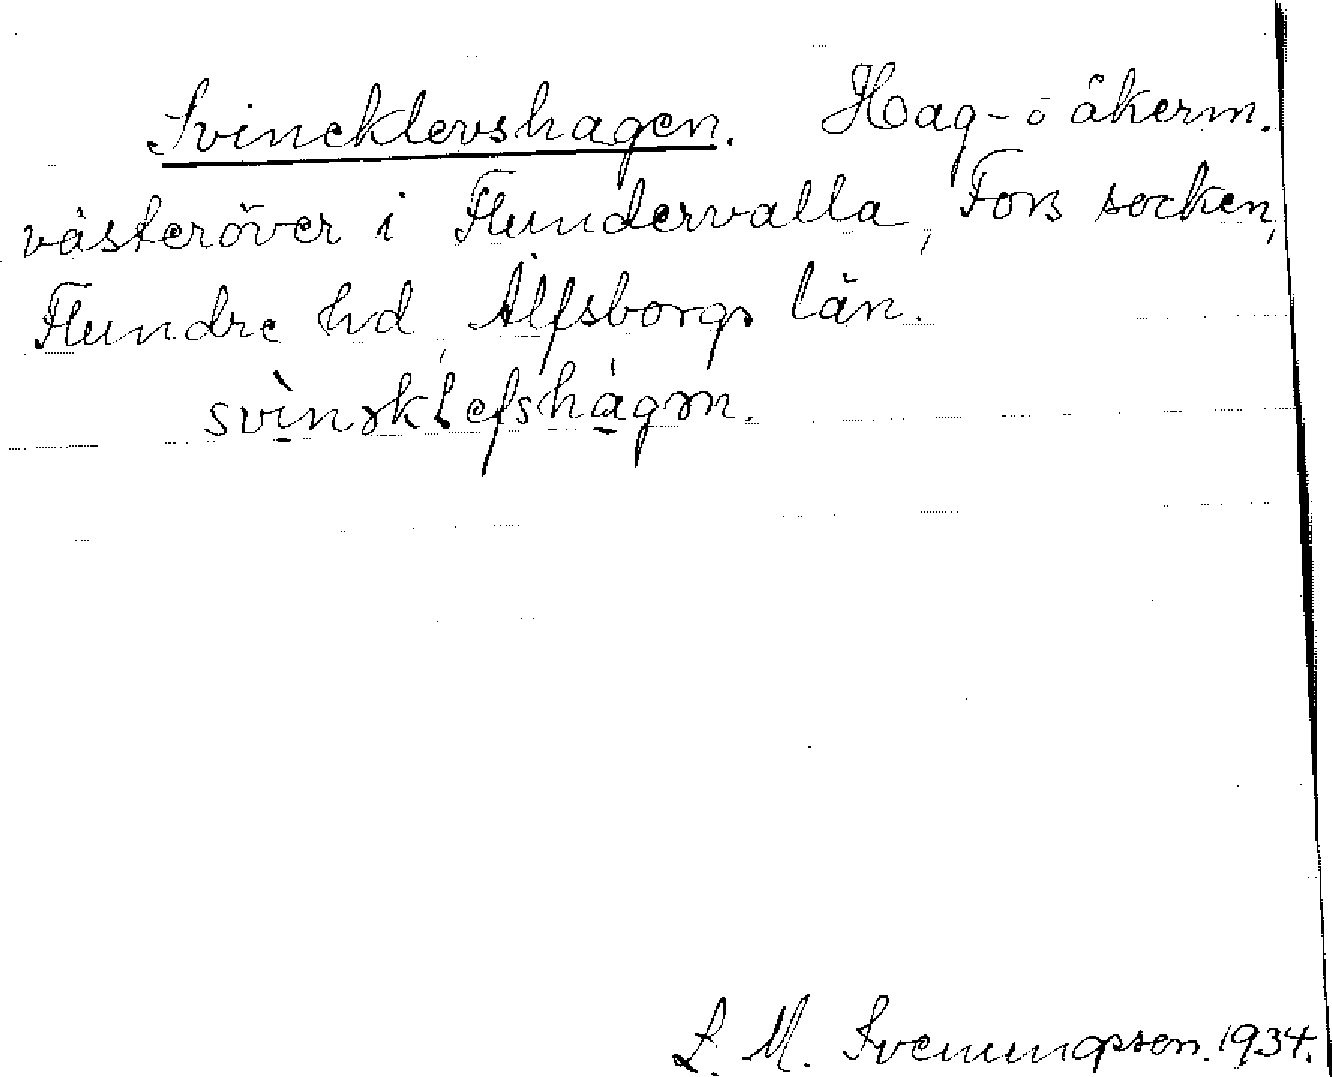 Svineklevshagen. Hag- o åkerm.
västeröver i Flundervalla, Fors socken,
Flundre hd, Älfsborgs län.
svìnəklefshágən.
L. M. Svenungsson. 1934.